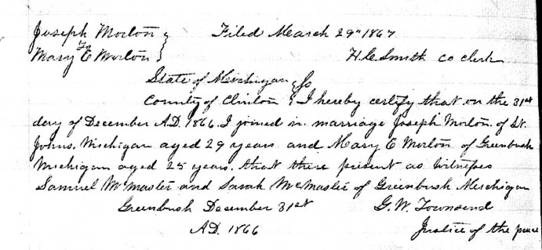 Joseph Morton } Filed March 29th 1867
to
Mary E Morton } H. C. Smith co clerk
State of Michigan } ss
County of Clinton } I hereby certify that on the 31st
day of December A.D. 1866. I joined in marriage Joseph Morton of St.
Johns. Michigan aged 29 years and Mary E Morton of Greenbush
Michigan aged 25 years. that there present as witnesses
Samuel McMaster and Sarah McMaster of Greenbush Michigan
Greenbush December 31st G. W. Townsend
A.D. 1866 Justice of the peace